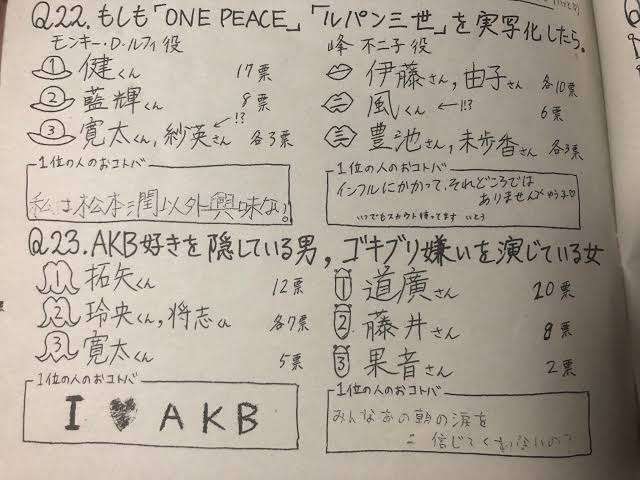 Q.22.もしも「ONE PEACE」「ルパン三世」を実写化したら。
モンキー・D・ルフィ役
1 健くん 17票
2 藍輝くん 8票
!?
3 寛太くん,紗英さん 各3票
1位の人のおコトバ
私は松本潤以外興味ない。
峰 不二子役
伊藤さん,由子さん 各10票
二 風くん ←!? 6票
三 豊池さん,未歩香さん 各3票
1位の人のおコトバ
インフルにかかって、それどころでは
ありません× ゆうこ♡
いつでもスカウト待ってます いとう
Q.23.AKB好きを隠している男,ゴキブリ嫌いを演じている女
1 拓矢くん 12票
2 玲央くん,将志くん 各7票
3 寛太くん 5票
1位の人のおコトバ
I ♥ AKB
1 道廣さん 20票
2 藤井さん 8票
3 果音さん 2票
1位の人のおコトバ
みんなあの朝の涙を
信じてくれないの?